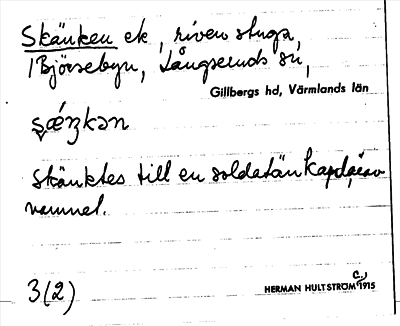 Skänken ek, riven stuga,
i Björsebyn, Långseruds sn,
Gillbergs hd, Värmlands län
skänktes till en soldatänka, därav
namnet.
3(2)
HERMAN HULTSTRÖM C., 1915